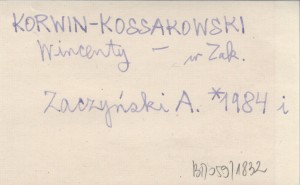 KORWIN-KOSSAKOWSKI
Wincenty — w Zak.
Zaczyński A. *1984 i